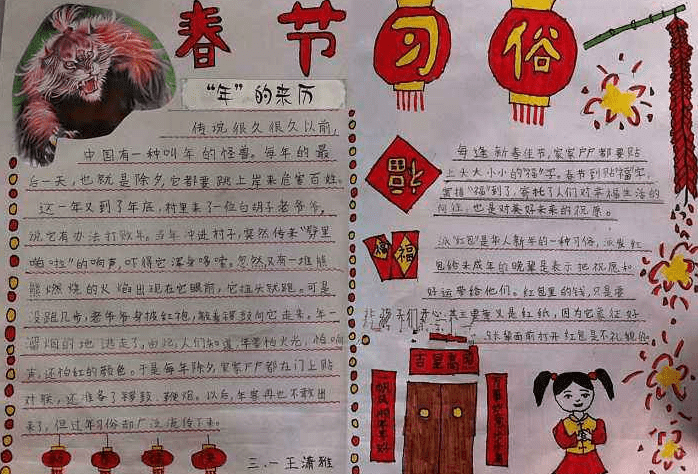 春节习俗
“年”的来历
传说很久很久以前,
中国有一种叫年的怪兽。每年的最
后一天,也就是除夕,它都要跳上岸来危害百姓。
这一年又到了年底,村里来了一位白胡子老爷爷,
说它有办法打败年。当年冲进村子,突然传来“劈里
啪啦”的响声,吓得它浑身哆嗦。忽然又有一堆熊
熊燃烧的火焰出现在它眼前,它扭头就跑。可是
没跑几步,老爷爷身披红袍,敲着锣鼓向它走来。年一
溜烟的地逃走了,由此,人们知道,年害怕火光,怕响
声,还怕红的颜色。于是每年除夕,家家户户都在门上贴
对联,还准备了锣鼓、鞭炮。以后,年兽再也不敢出
来了,但过年习俗却广泛流传下来。
三.一 王潇雅
每逢新春佳节,家家户户都要贴
上大大小小的“福”字。春节到贴福字,
宣接“福”到了,寄托了人们对幸福生活的
向往,也是对美好未来的祝愿。
福
福
派“红包”是华人新年的一种习俗,派发红
包给未成年的晚辈是表示把祝愿和
好运带给他们。红包里的钱,只是要
孩子们开心,其主要意义是红纸,因为它象征好
长辈面前打开红包是不礼貌的
吉星高照
一帆风顺年年好
万事如意步步高